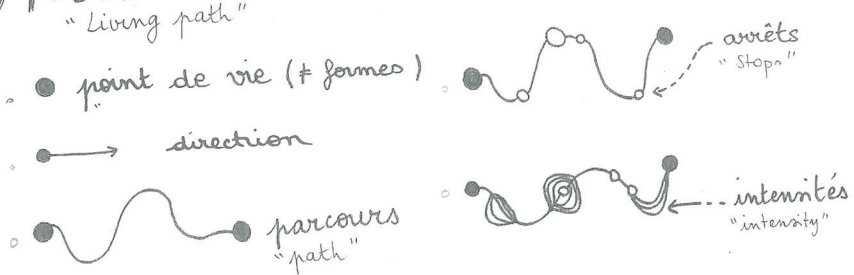 "Living path"
point de vie (≠ formes)
direction
parcours
"path"
arrêts
"Stops"
intensités
"intensity"